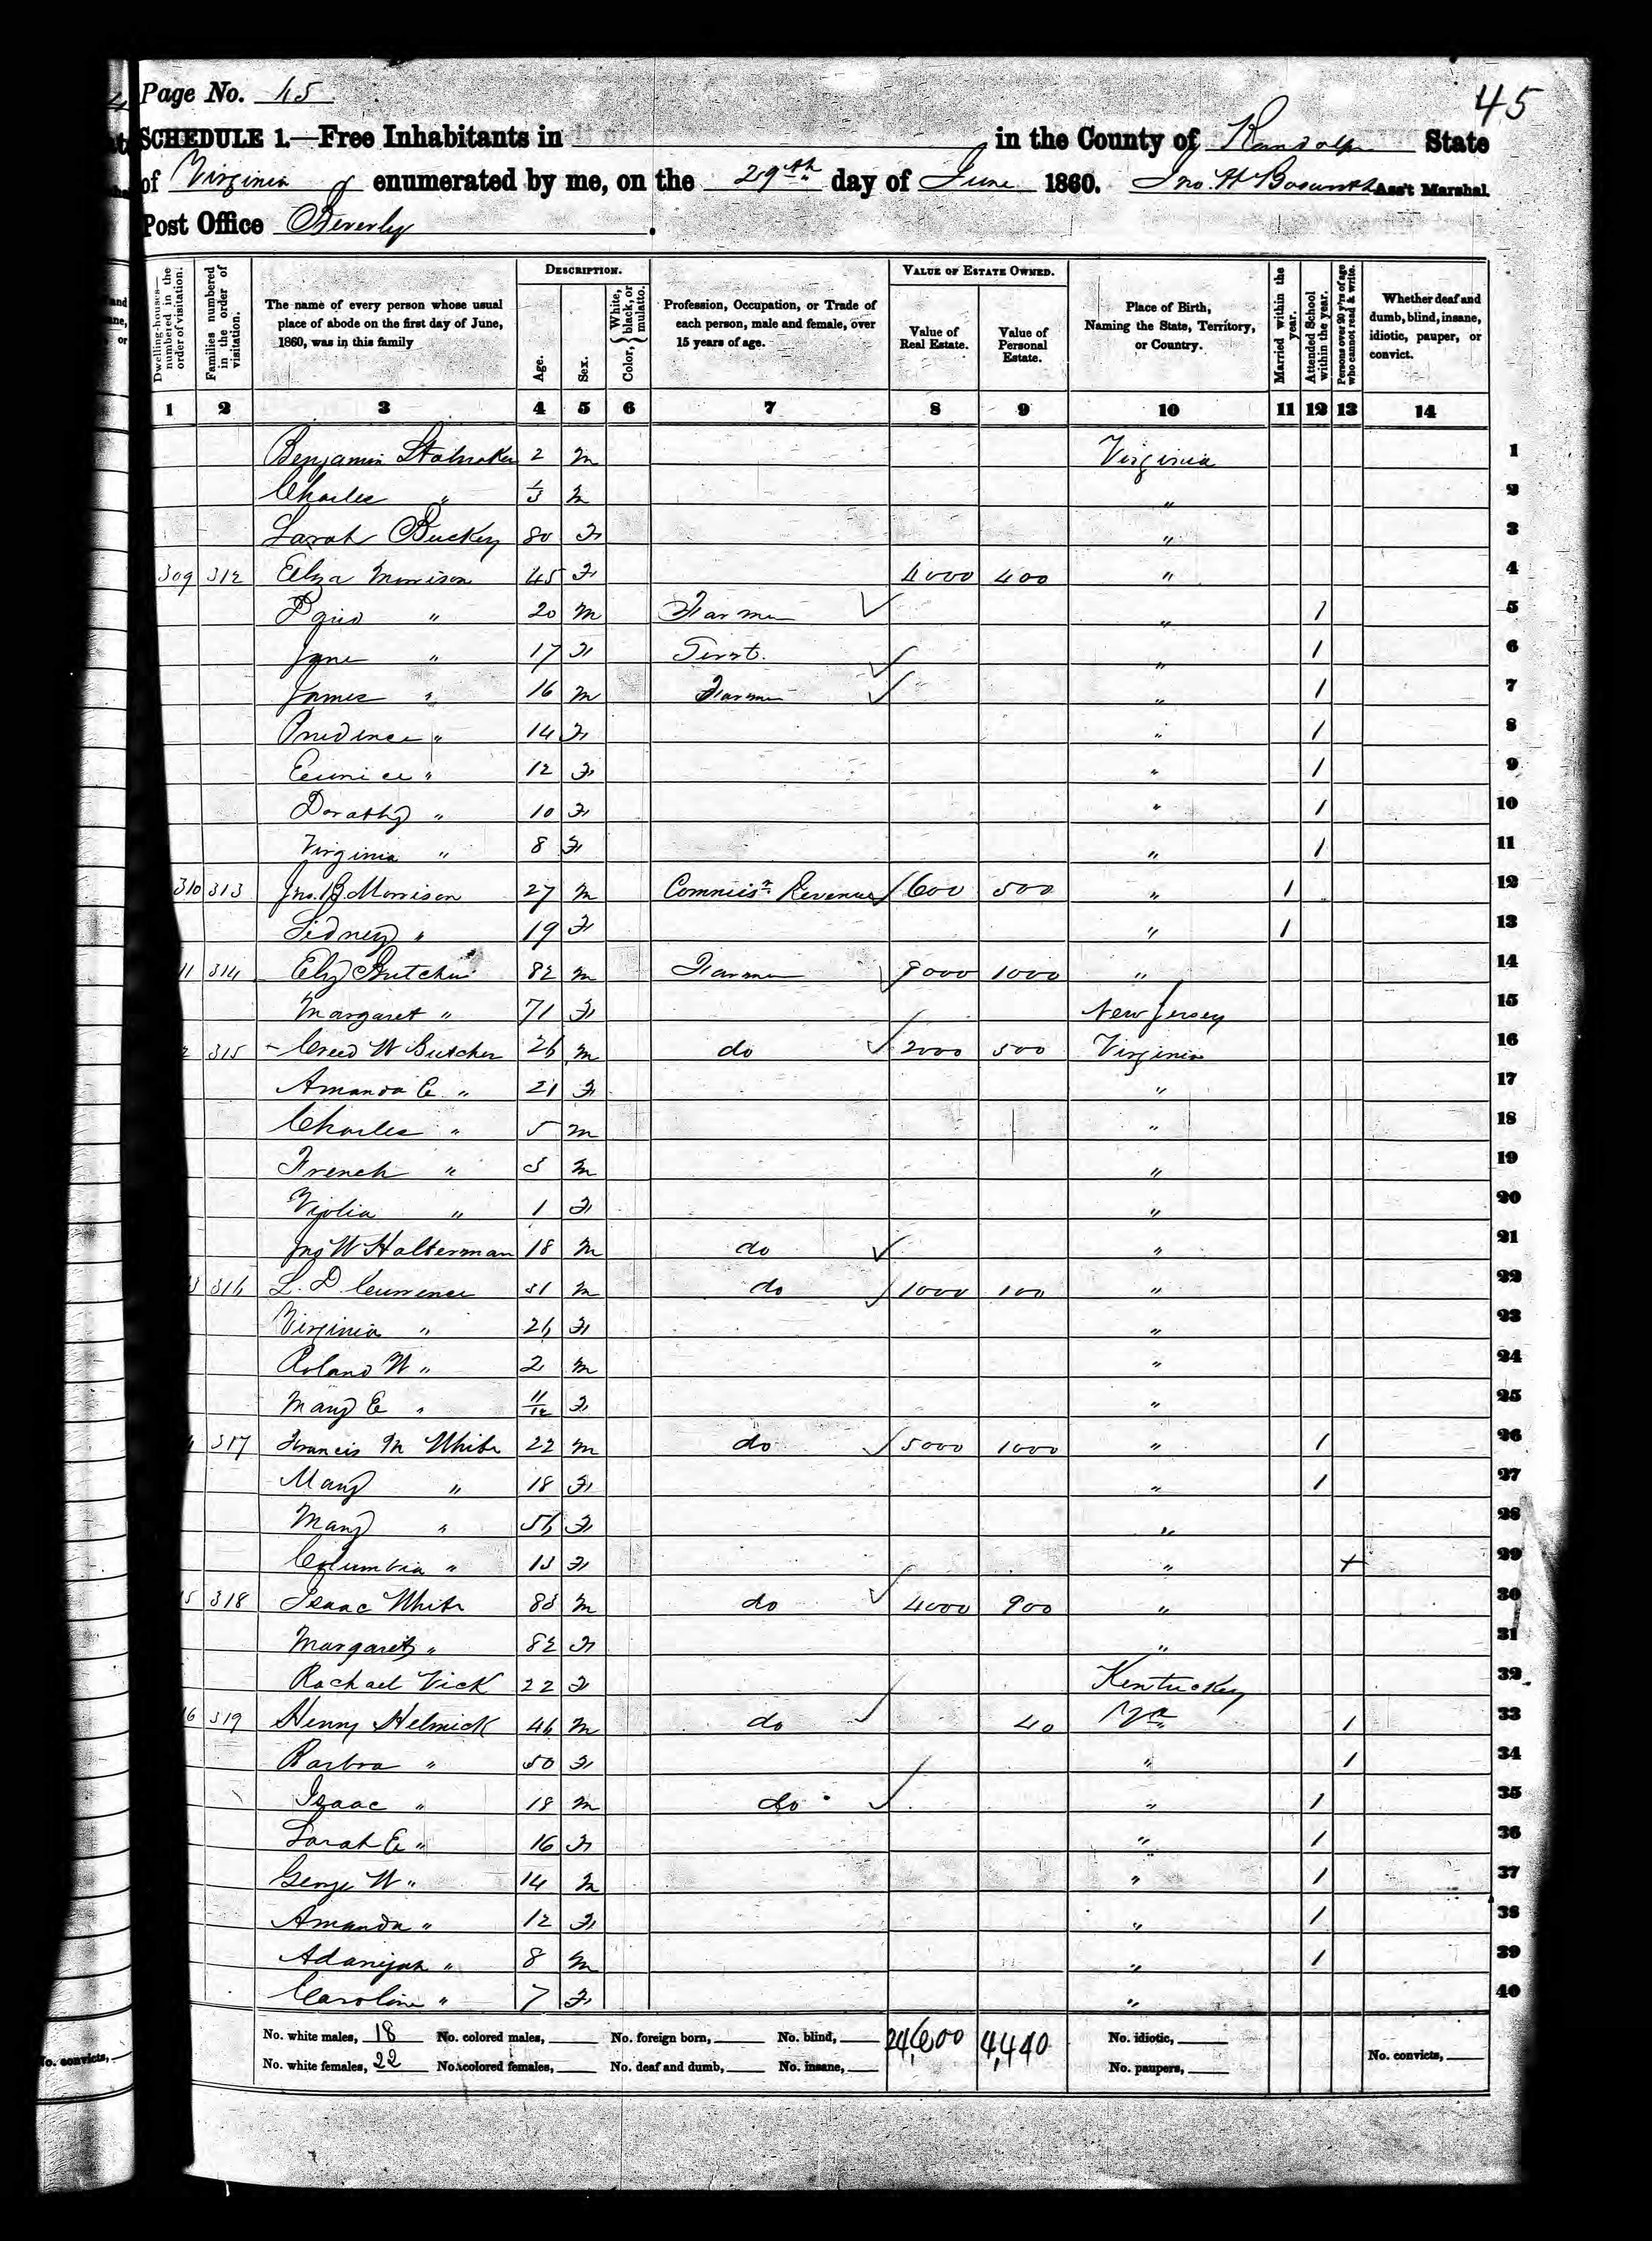 Page No. 45
45
SCHEDULE 1.—Free Inhabitants in in the County of Randolph State
of Virginia enumerated by me, on the 29th day of June 1860. Jno. H Ass't Marshal
Post Office Beverly.
DESCRIPTION. VALUE OF ESTATE OWNED.
Dwelling-houses—numbered in the order of visitation. Families numbered in the order of visitation. The name of every person whose usual place of abode on the first day of June, 1860, was in this family Age. Sex. Color, { White, black, or mulatto. Profession, Occupation, or Trade of each person, male and female, over 15 years of age. Value of Real Estate. Value of Personal Estate. Place of Birth, Naming the State, Territory, or Country. Married within the year. Attended School within the year. Persons over 20 y'rs of age who cannot read & write. Whether deaf and dumb, blind, insane, idiotic, pauper, or convict.
1 2 3 4 5 6 7 8 9 10 11 12 13 14
Benjamin Stalnaker 2 m Virginia 1
Charles " m " 2
Sarah Buckey 80 F " 3
309 312 Eliza Morrison 45 F 4000 400 " 4
" 20 m Farmer " 1 5
Jane " 17 F Servt. " 1 6
James " 16 m Farmer " 1 7
Prudence " 14 F " 1 8
Eunice " 12 F " 1 9
Dorathy " 10 F " 1 10
Virginia " 8 F " 1 11
310 313 Jno. B Morrison 27 m Commisr Revenue 600 500 " 1 12
Sidney " 19 F " 1 13
11 314 Ely Butcher 82 m Farmer 8000 1000 " 14
Margaret " 71 F New Jersey 15
2 315 Creed W Butcher 26 m do 2000 500 Virginia 16
Amanda E " 21 F " 17
Charles " 5 m " 18
French " 3 m " 19
Violia " 1 F " 20
Jno W Halterman 18 m do " 21
3 316 L. D Currence 31 m do 1000 100 " 22
Virginia " 26 F " 23
Roland W " 2 m " 24
Mary E " 11/12 F " 25
4 317 Francis M White 22 m do 5000 1000 " 1 26
Mary " 18 F " 1 27
Mary " 56 F " 28
Columbia " 13 F " + 29
15 318 Isaac White 83 m do 4000 900 " 30
Margaret " 82 F " 31
Rachael Vick 22 F Kentucky 32
16 319 Henry Helmick 46 m do 40 Va 1 33
Barbra " 50 F " 1 34
Isaac " 18 m do " 1 35
Sarah E " 16 F " 1 36
George W " 14 m " 1 37
Amanda " 12 F " 1 38
Adanijah " 8 m " 1 39
Caroline " 7 F " 40
No. white males, 18 No. colored males, No. foreign born, No. blind, 24,600 4,440 No. idiotic,
No. white females, 22 No. colored females, No. deaf and dumb, No. insane, No. paupers, No. convicts,
No. convicts,